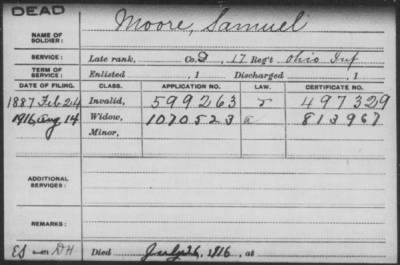 DEAD
NAME OF SOLDIER: Moore, Samuel
SERVICE: Late rank, Co. D, 17 Reg't Ohio Inf
TERM OF SERVICE: Enlisted , 1 Discharged , 1
DATE OF FILING. CLASS. APPLICATION NO. LAW. CERTIFICATE NO.
1887 Feb 24 Invalid, 599263 497329
1916 Aug 14 Widow, 1070523 813967
Minor,
ADDITIONAL SERVICES:
REMARKS:
Died July 26, 1916, at